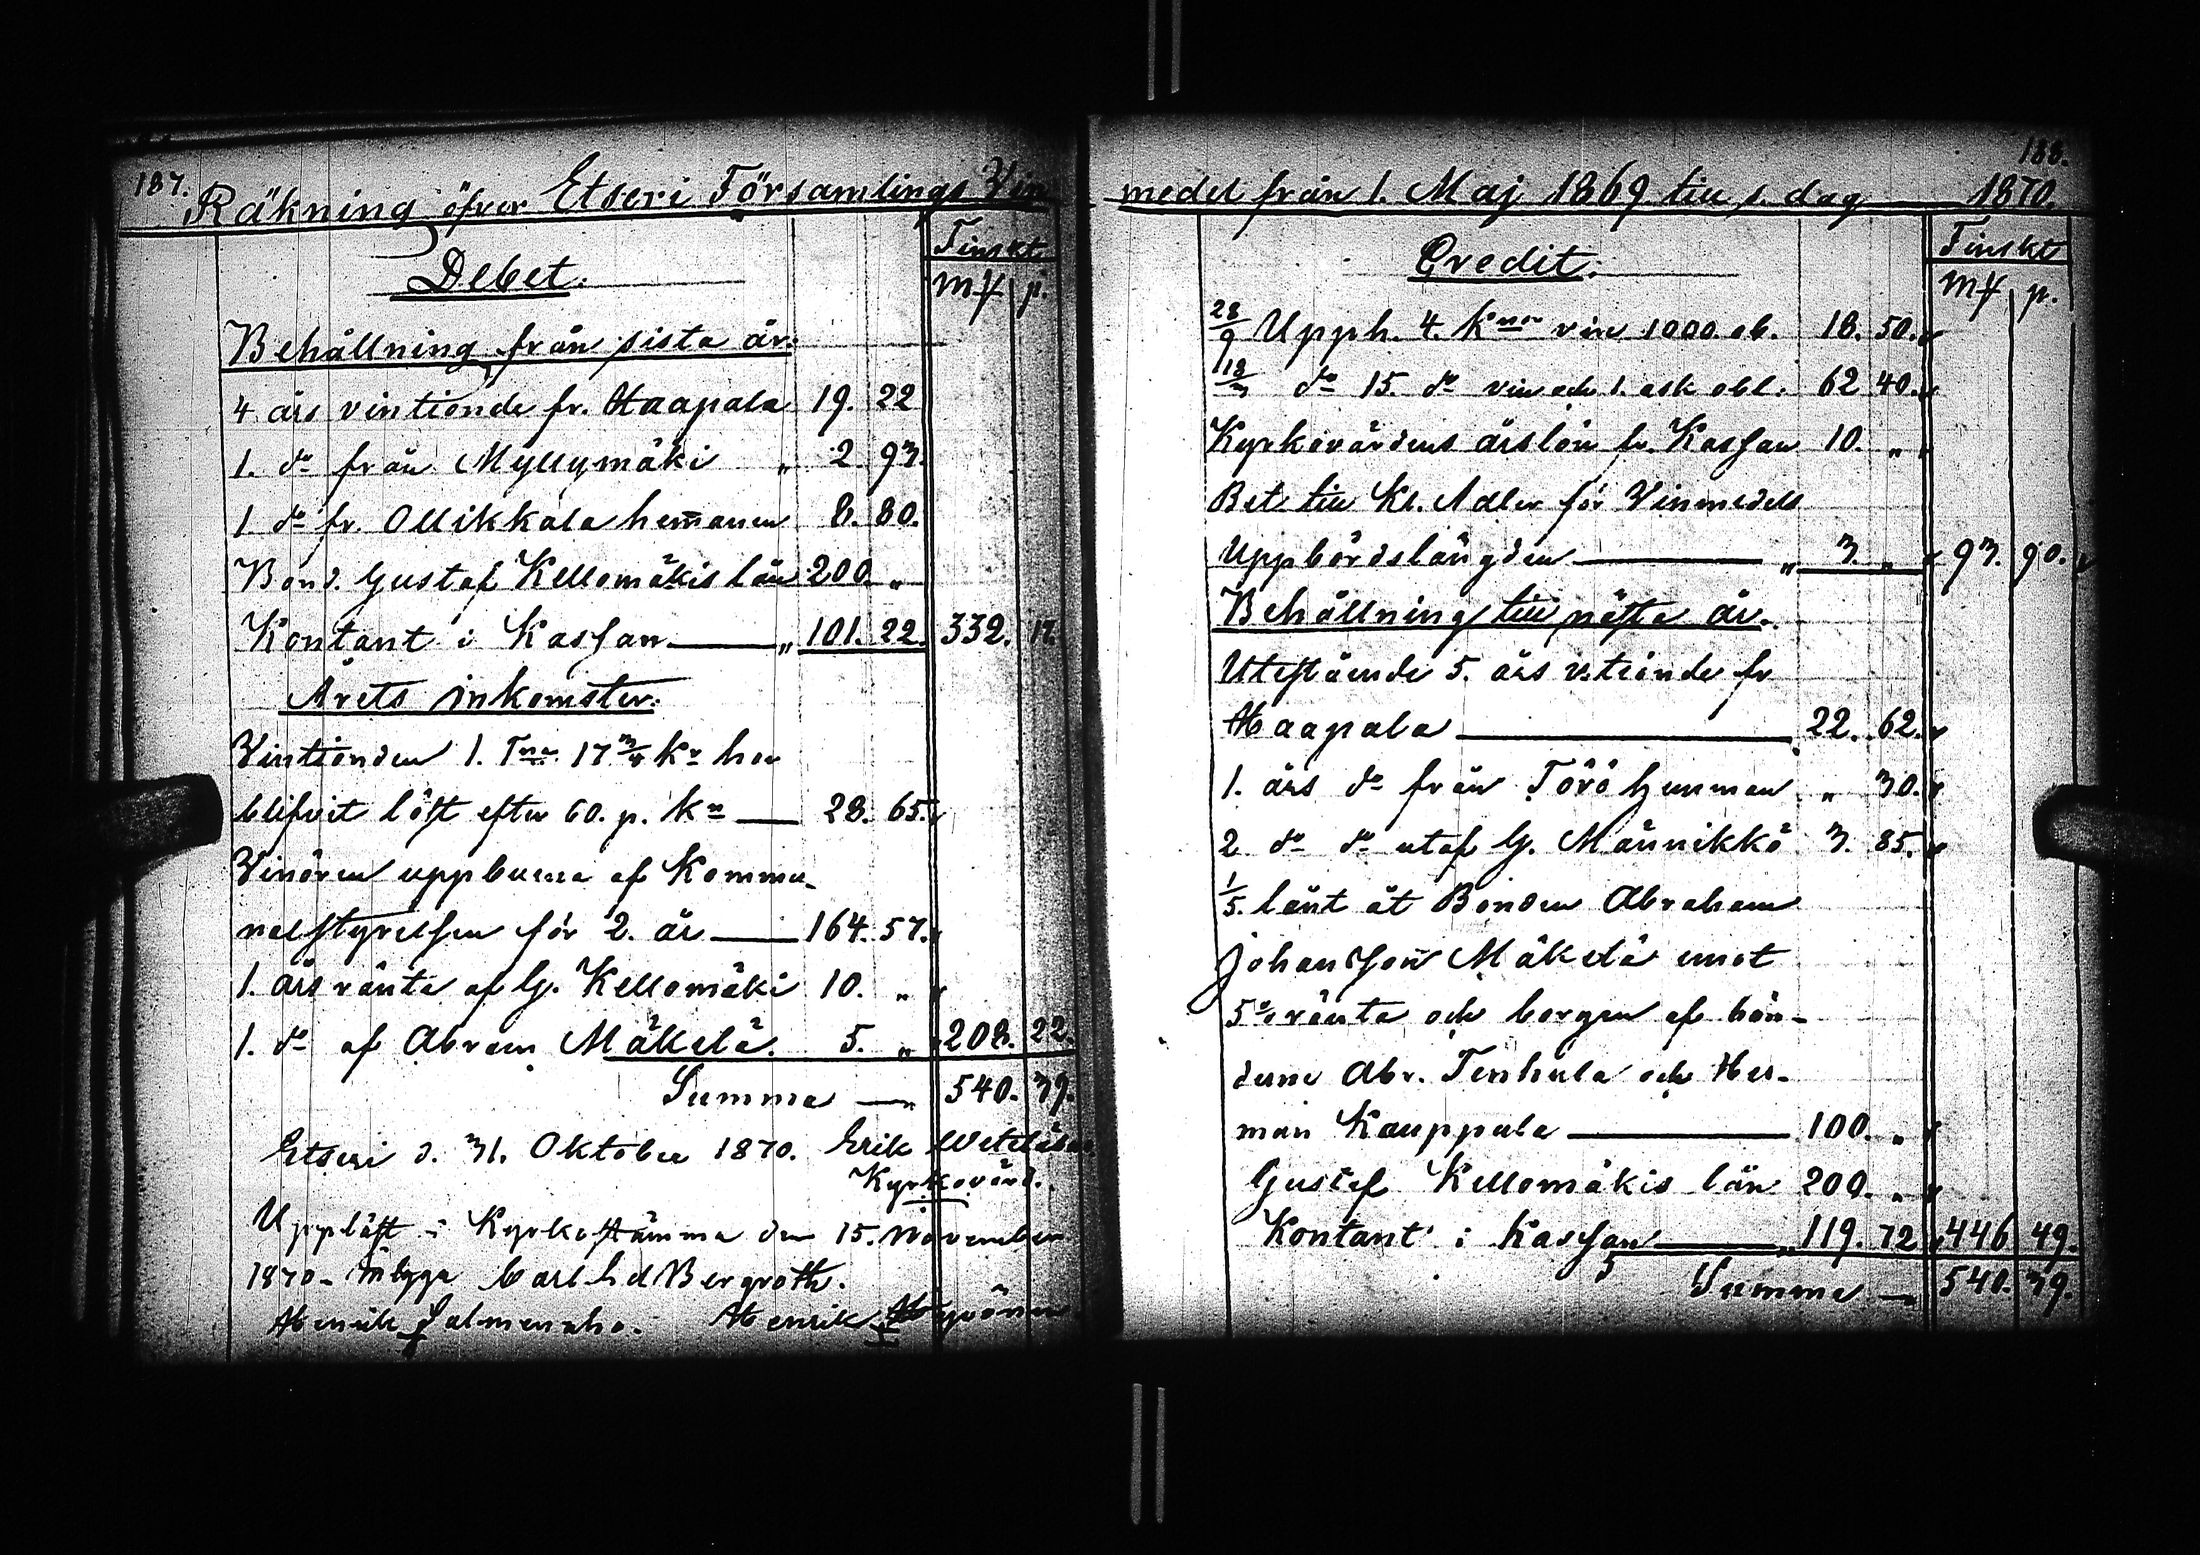 187.
Räkning öfver Etseri Församlings Vin
Finskt.
Debet.
Mk p.
Behållning från sista år.
4 års vintionde fr. Haapala 19. 22
1. do från Myllymäki „ 2. 93.
1 do fr. Ollikkala hemanen 8. 80.
Bond. Gustaf Kellomäkis lån 200. „
Kontant i Kassan „ 101. 22. 332. 17.
Årets inkomster.
Vintionden 1. Tna 17 3/4 kr har
blifvit löst efter 60. p. kn 28. 65.
Vinören uppburna af Kommu-
nalstyrelsen för 2. år 164. 57.
1. års ränta af G. Kellomäki 10. „
1. do af Abram Mäkelä. 5. „ 208. 22.
Summa 540. 39.
Etseri d. 31. Oktober 1870. Erik
Kyrkovärd.
Uppläst i Kyrkostämma den 15. November
1870. Carl Bergroth.
Henrik Salmenaho. Henrik
188.
medel från 1. Maj 1869 till s. dag 1870.
Finskt
Credit.
Mk p.
28/9 Upph. 4. knor vin 1000. ob. 18. 50.
18/3 do 15. do vin och 1. ask obl. 62 40.
Kyrkovärdens årslön fr. Kassan 10. „
Bet. till Kl. Adler för Vinmedels
Uppbördslängden „ 3. „ 93. 90.
Behållning till nästa år.
Utestående 5. års v.tionde fr
Haapala 22. 62.
1. års do från Törö hemman „ 30.
2 do do utaf G. Männikkö 3. 85.
1/5. lånt åt Bonden Abraham
Johansson Mäkelä emot
5% ränta och borgen af bön-
derne Abr. Tenhula och Her-
man Kauppala 100. „
Gustaf Kellomäkis lån 200. „
Kontant i Kassan „ 119. 72 446 49.
Summa 540. 39.